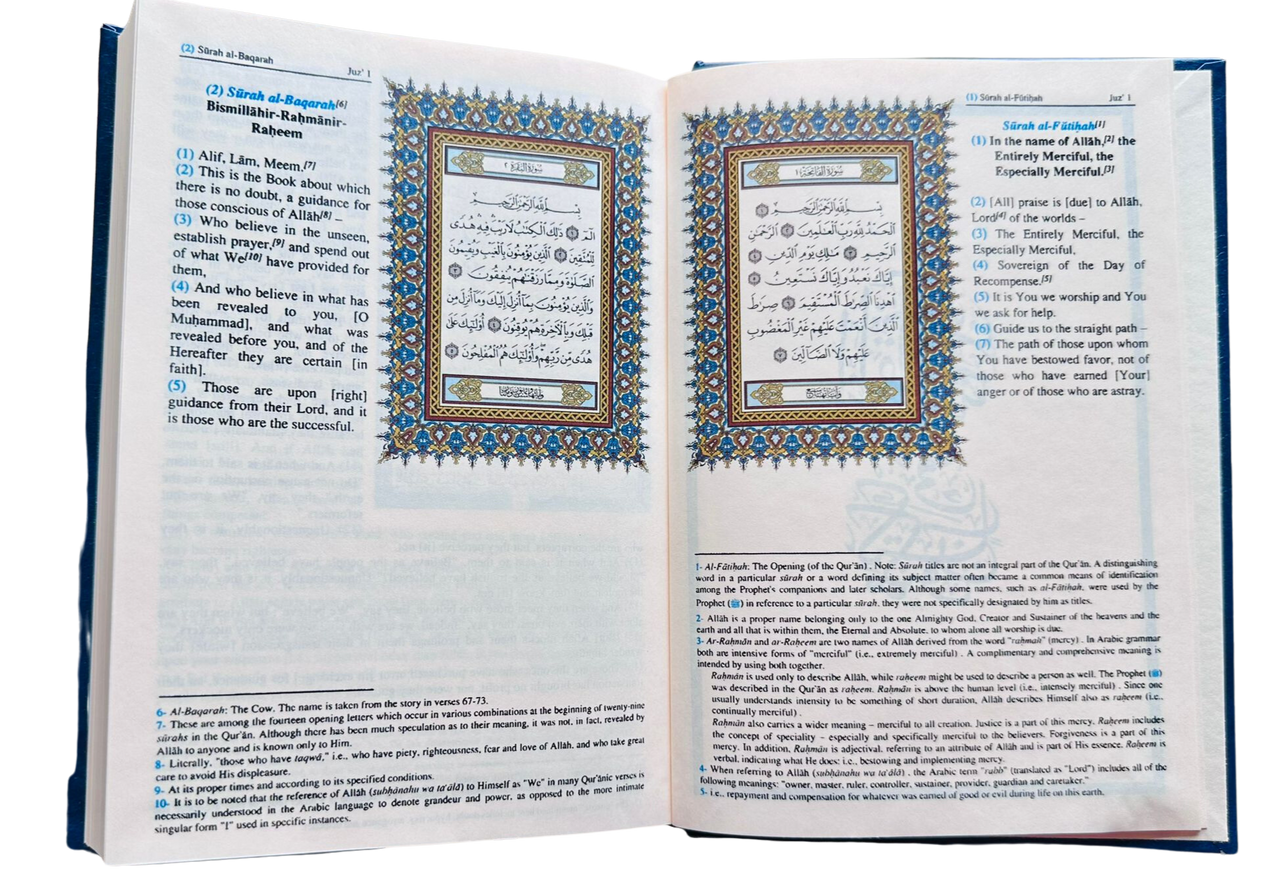 (1) Sūrah al-Fātiḥah Juz' 1
Sūrah al-Fātiḥah[1]
(1) In the name of Allāh,[2] the
Entirely Merciful, the
Especially Merciful.[3]
(2) [All] praise is [due] to Allāh,
Lord[4] of the worlds –
(3) The Entirely Merciful, the
Especially Merciful,
(4) Sovereign of the Day of
Recompense.[5]
(5) It is You we worship and You
we ask for help.
(6) Guide us to the straight path –
(7) The path of those upon whom
You have bestowed favor, not of
those who have earned [Your]
anger or of those who are astray.
سُورَةُ الفَاتِحَةِ ١
بِسْمِ ٱللَّهِ ٱلرَّحْمَٰنِ ٱلرَّحِيمِ ١
ٱلْحَمْدُ لِلَّهِ رَبِّ ٱلْعَٰلَمِينَ ٢ ٱلرَّحْمَٰنِ
ٱلرَّحِيمِ ٣ مَٰلِكِ يَوْمِ ٱلدِّينِ ٤
إِيَّاكَ نَعْبُدُ وَإِيَّاكَ نَسْتَعِينُ ٥
ٱهْدِنَا ٱلصِّرَٰطَ ٱلْمُسْتَقِيمَ ٦ صِرَٰطَ
ٱلَّذِينَ أَنْعَمْتَ عَلَيْهِمْ غَيْرِ ٱلْمَغْضُوبِ
عَلَيْهِمْ وَلَا ٱلضَّآلِّينَ ٧
وآياتها سبع
1- Al-Fātiḥah: The Opening (of the Qur'ān). Note: Sūrah titles are not an integral part of the Qur'ān. A distinguishing
word in a particular sūrah or a word defining its subject matter often became a common means of identification
among the Prophet's companions and later scholars. Although some names, such as al-Fātiḥah, were used by the
Prophet (ﷺ) in reference to a particular sūrah, they were not specifically designated by him as titles.
2- Allāh is a proper name belonging only to the one Almighty God, Creator and Sustainer of the heavens and the
earth and all that is within them, the Eternal and Absolute, to whom alone all worship is due.
3- Ar-Raḥmān and ar-Raḥeem are two names of Allāh derived from the word "raḥmah" (mercy). In Arabic grammar
both are intensive forms of "merciful" (i.e., extremely merciful). A complimentary and comprehensive meaning is
intended by using both together.
Raḥmān is used only to describe Allāh, while raḥeem might be used to describe a person as well. The Prophet (ﷺ)
was described in the Qur'ān as raḥeem. Raḥmān is above the human level (i.e., intensely merciful). Since one
usually understands intensity to be something of short duration, Allāh describes Himself also as raḥeem (i.e.,
continually merciful).
Raḥmān also carries a wider meaning – merciful to all creation. Justice is a part of this mercy. Raḥeem includes
the concept of speciality – especially and specifically merciful to the believers. Forgiveness is a part of this
mercy. In addition, Raḥmān is adjectival, referring to an attribute of Allāh and is part of His essence. Raḥeem is
verbal, indicating what He does: i.e., bestowing and implementing mercy.
4- When referring to Allāh (subḥānahu wa ta'ālā), the Arabic term "rabb" (translated as "Lord") includes all of the
following meanings: "owner, master, ruler, controller, sustainer, provider, guardian and caretaker."
5- i.e., repayment and compensation for whatever was earned of good or evil during life on this earth.
(2) Sūrah al-Baqarah Juz' 1
(2) Sūrah al-Baqarah[6]
Bismillāhir-Raḥmānir-
Raḥeem
(1) Alif, Lām, Meem.[7]
(2) This is the Book about which
there is no doubt, a guidance for
those conscious of Allāh[8] –
(3) Who believe in the unseen,
establish prayer,[9] and spend out
of what We[10] have provided for
them,
(4) And who believe in what has
been revealed to you, [O
Muḥammad], and what was
revealed before you, and of the
Hereafter they are certain [in
faith].
(5) Those are upon [right]
guidance from their Lord, and it
is those who are the successful.
سُورَةُ البَقَرَةِ ٢
بِسْمِ ٱللَّهِ ٱلرَّحْمَٰنِ ٱلرَّحِيمِ
الٓمٓ ١ ذَٰلِكَ ٱلْكِتَٰبُ لَا رَيْبَ فِيهِ هُدًى
لِّلْمُتَّقِينَ ٢ ٱلَّذِينَ يُؤْمِنُونَ بِٱلْغَيْبِ وَيُقِيمُونَ
ٱلصَّلَوٰةَ وَمِمَّا رَزَقْنَٰهُمْ يُنفِقُونَ ٣
وَٱلَّذِينَ يُؤْمِنُونَ بِمَآ أُنزِلَ إِلَيْكَ وَمَآ أُنزِلَ مِن
قَبْلِكَ وَبِٱلْءَاخِرَةِ هُمْ يُوقِنُونَ ٤ أُو۟لَٰٓئِكَ عَلَىٰ
هُدًى مِّن رَّبِّهِمْ وَأُو۟لَٰٓئِكَ هُمُ ٱلْمُفْلِحُونَ ٥
6- Al-Baqarah: The Cow. The name is taken from the story in verses 67-73.
7- These are among the fourteen opening letters which occur in various combinations at the beginning of twenty-nine
sūrahs in the Qur'ān. Although there has been much speculation as to their meaning, it was not, in fact, revealed by
Allāh to anyone and is known only to Him.
8- Literally, "those who have taqwā," i.e., who have piety, righteousness, fear and love of Allāh, and who take great
care to avoid His displeasure.
9- At its proper times and according to its specified conditions.
10- It is to be noted that the reference of Allāh (subḥānahu wa ta'ālā) to Himself as "We" in many Qur'ānic verses is
necessarily understood in the Arabic language to denote grandeur and power, as opposed to the more intimate
singular form "I" used in specific instances.